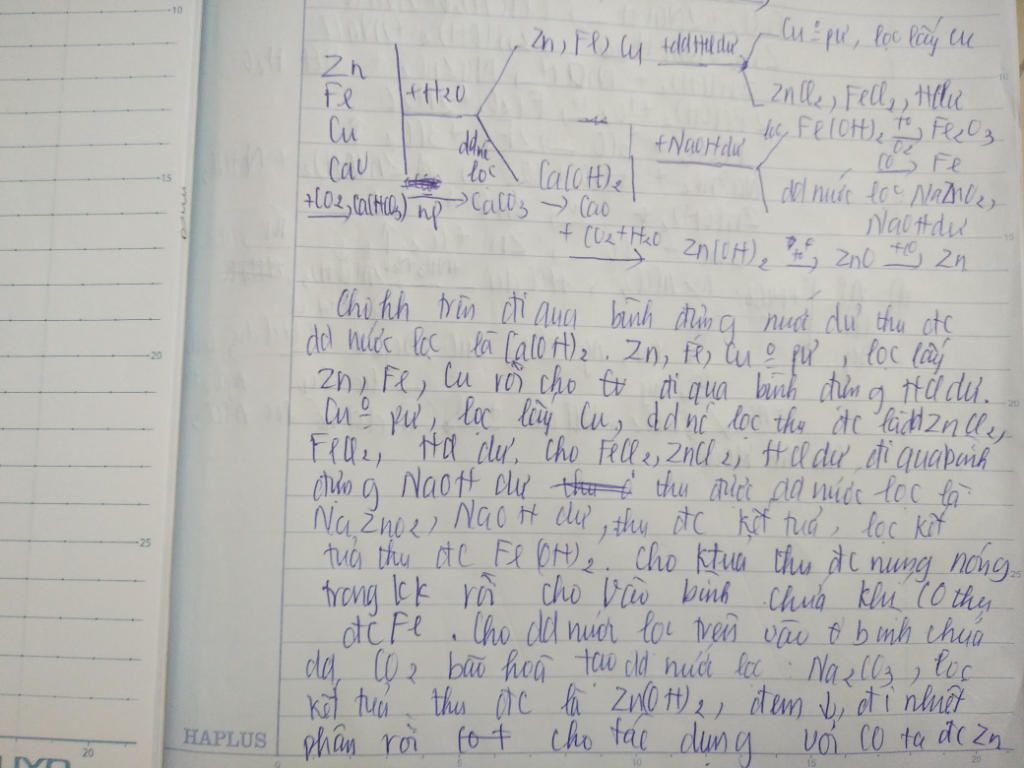 Zn, Fe, Cu +ddHCl dư
Cu º pư, lọc lấy Cu
ZnCl2, FeCl2, HCl dư
Zn
Fe
Cu
CaO
+H2O
dd nc
lọc
Ca(OH)2
+NaOH dư
lọc Fe(OH)2 tº O2 Fe2O3
CO Fe
dd nước lọc NaZnO2,
NaOH dư
+CO2, Ca(HCO3) np → CaCO3 → CaO
+ CO2+H2O Zn(OH)2 tº ZnO +CO Zn
Cho hh trên đi qua bình đựng nước dư thu đc
dd nước lọc là Ca(OH)2. Zn, Fe, Cu º pư, lọc lấy
Zn, Fe, Cu rồi cho đi qua bình đựng HCl dư.
Cu º pư, lọc lấy Cu, dd nc lọc thu đc là ZnCl2,
FeCl2, HCl dư. Cho FeCl2, ZnCl2, HCl dư đi qua bình
đựng NaOH dư thu được dd nước lọc là
Na2ZnO2, NaOH dư, thu đc kết tuả, lọc kết
tuả thu đc Fe(OH)2. Cho ktuả thu đc nung nóng
trong kk rồi cho vào bình chứa khí CO thu
đc Fe. Cho dd nước lọc trên vào bình chứa
dd CO2 bão hoà tạo dd nước lọc: Na2CO3, lọc
kết tuả thu đc là Zn(OH)2, đem ↓ đi nhiệt
phân rồi cho tác dụng với CO ta đc Zn
HAPLUS
10
15
20
25
20